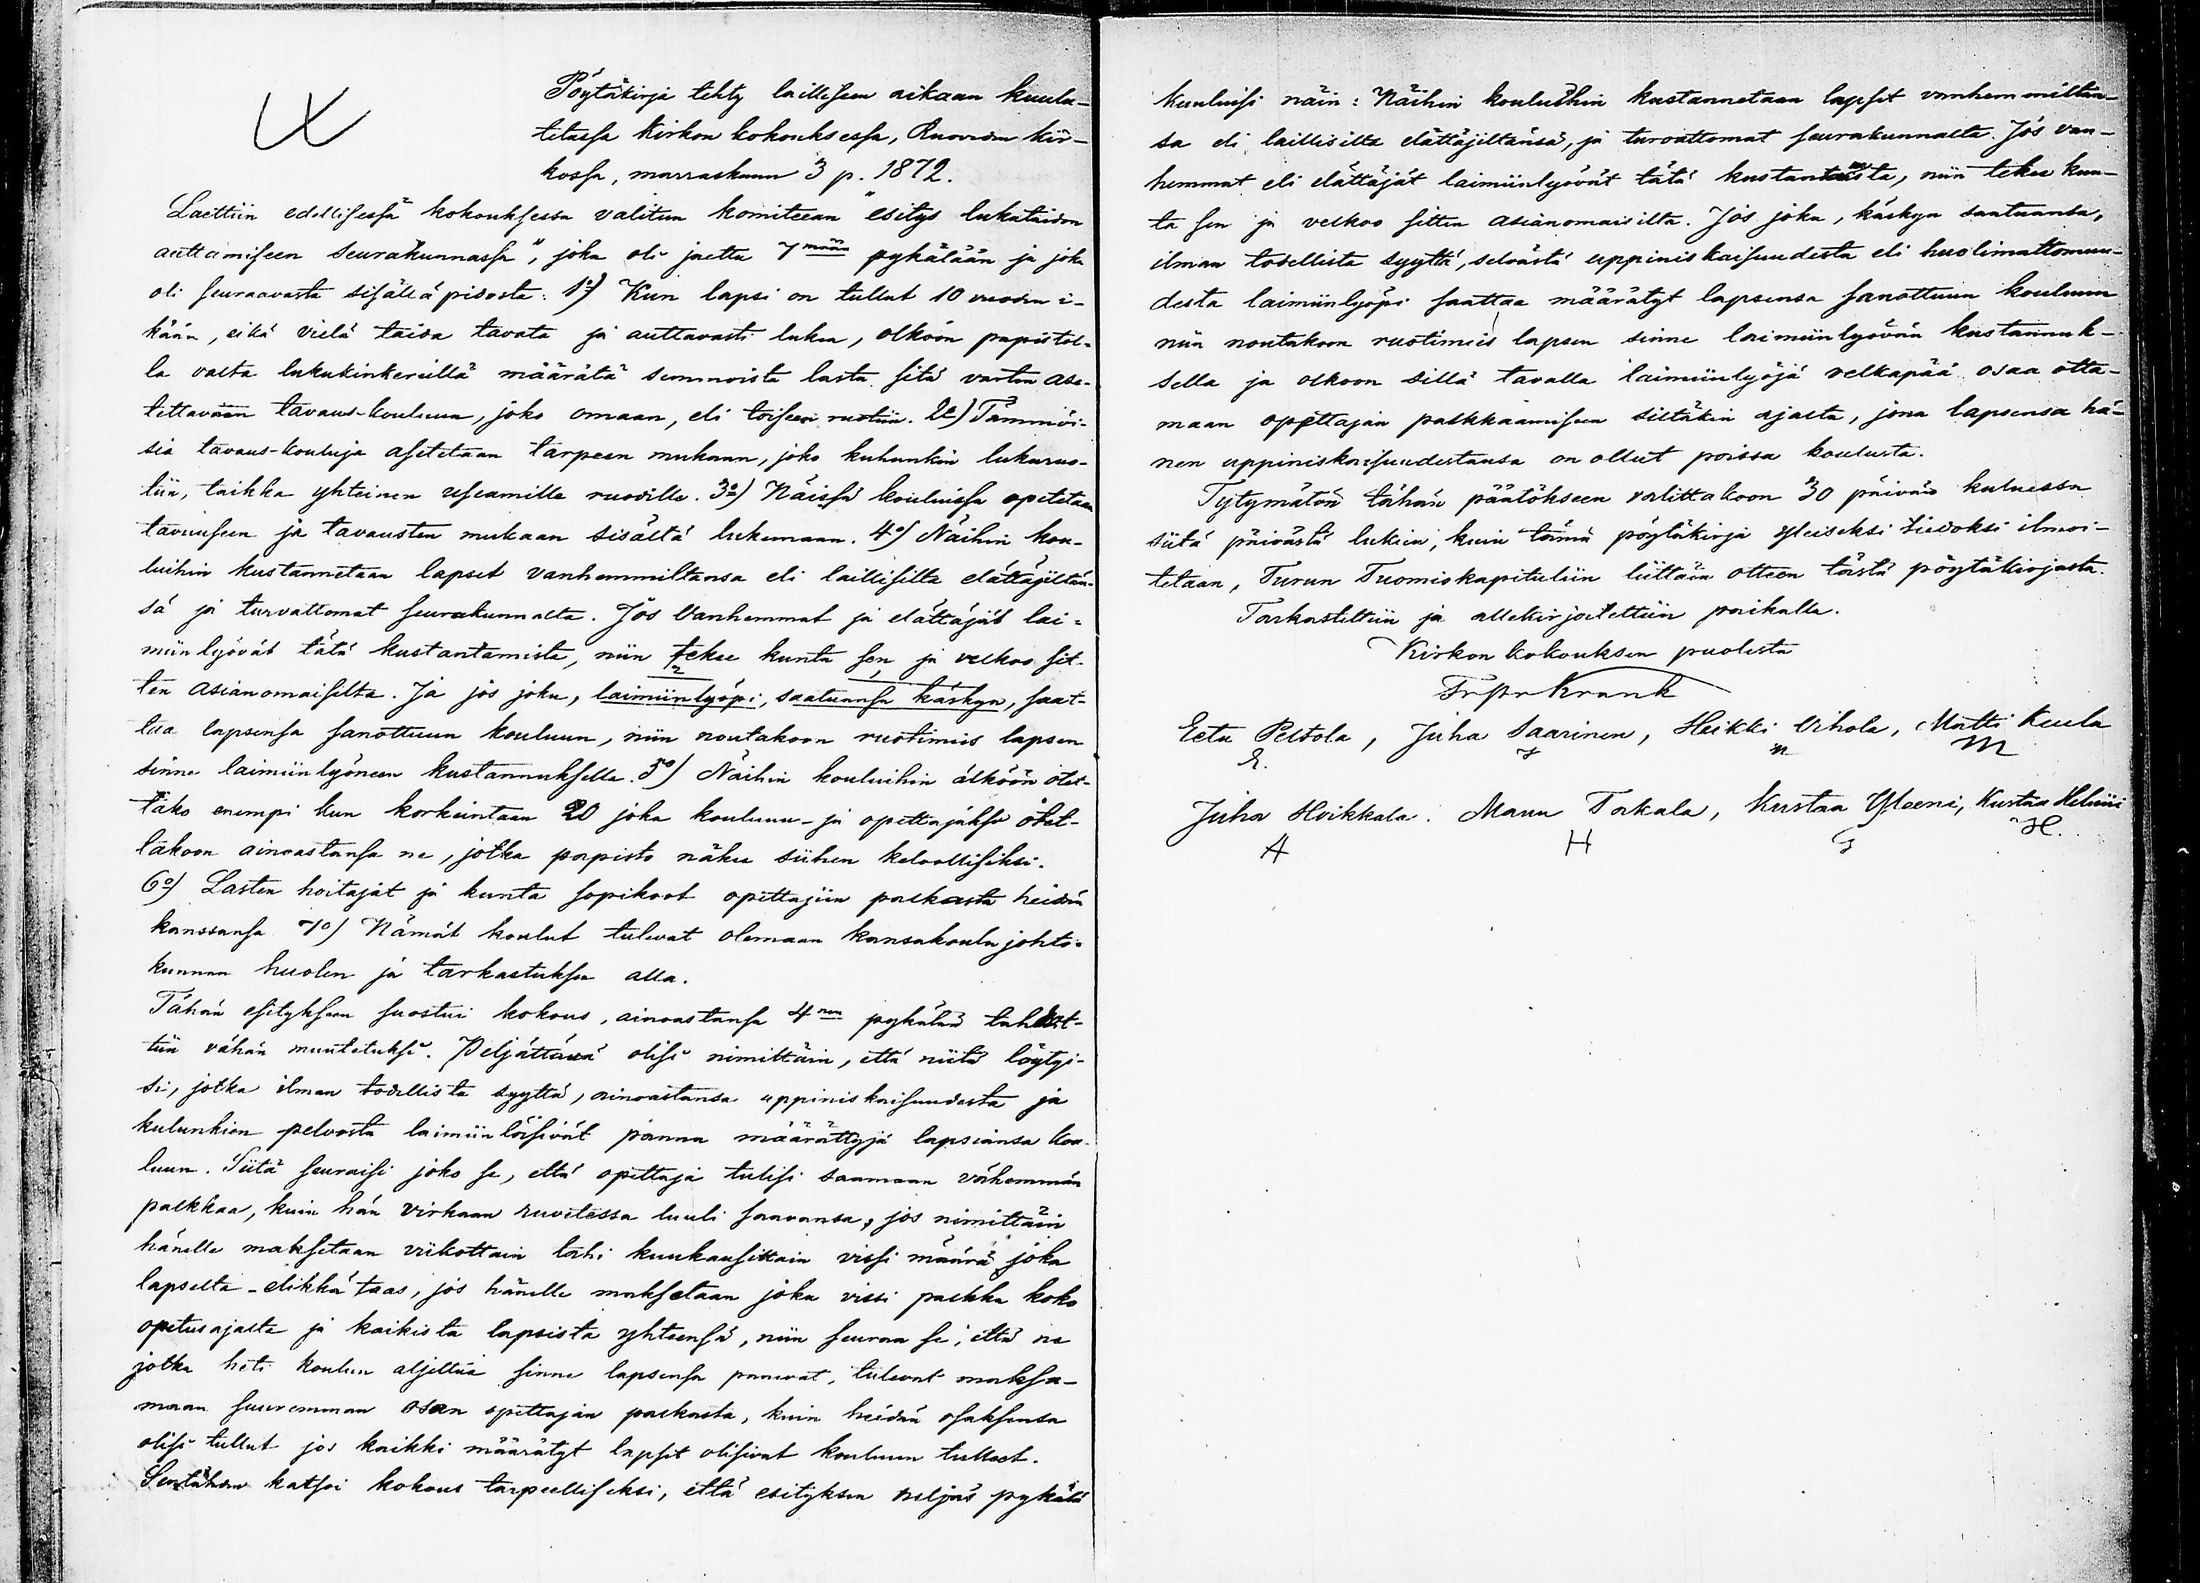 Pöytäkirja tehty lailliseen aikaan kuulu-
tetussa Kirkon kokouksessa, Ruoveden kir-
kossa, marraskuun 3 p. 1872.
Luettiin edellisessä kokouksessa valitun komiteean "esitys lukutaidon
auttamiseen Seurakunnassa", joka oli jaettu 7mään pykälään ja joka
oli seuraavasta sisällä pidosta: 1o) Kun lapsi on tullut 10 vuoden i-
kään, eikä vielä taida tavata ja auttavasti lukea, olkoon papistol-
la valta lukukinkereillä määrätä semmoista lasta sitä varten ase-
tettavaan tavaus-kouluun, joko omaan, eli toiseen ruotiin. 2o) Tämmöi-
siä tavaus-kouluja asetetaan tarpeen mukaan, joko kuhunkin lukuruo-
tiin, taikka yhteinen useamille ruodille. 3o) Näissä kouluissa opetetaan
tavuuseen ja tavausten mukaan sisältä lukemaan. 4o) Näihin kou-
luihin kustannetaan lapset vanhemmiltansa eli laillisilta elättäjiltän-
sä ja turvattomat seurakunnalta. Jos Vanhemmat ja elättäjät lai-
miinlyövät tätä kustantamista, niin tekee kunta sen, ja velkoo sit-
ten asianomaisilta. Ja jos joku, laimiinlyöpi, saatuansa käskyn, saat-
taa lapsensa sanottuun kouluun, niin noutakoon ruotimies lapsen
sinne laimiinlyöneen kustannuksella. 5o) Näihin kouluihin älköön otet-
tako enempi kun korkeintaan 20 joka kouluun - ja opettajaksi otet-
takoon ainoastansa ne, jotka papisto näkee siihen kelvollisiksi.
6o) Lasten hoitajat ja kunta sopikoot opettajien palkasta heidän
kanssansa 7o) Nämät koulut tulevat olemaan kansakoulu johto-
kunnan huolen ja tarkastuksen alla.
Tähän esitykseen suostui kokous, ainoastansa 4nen pykälän tahdot-
tiin vähän muutetuksi. Peljättävä olisi nimittäin, että niitä löytyi-
si, jotka ilman todellista syyttä, ainoastansa uppiniskaisuudesta ja
kulunkien pelvosta laimiinlöisivät panna määrättyjä lapsiansa kou-
luun. Siitä seuraisi joko se, että opettaja tulisi saamaan vähemmän
palkkaa, kuin hän virkaan ruvetessa luuli saavansa, jos nimittäin
hänelle maksetaan viikottain tahi kuukausittain vissi määrä joka
lapselta - elikkä taas, jos hänelle maksetaan joku vissi palkka koko
opetusajalta ja kaikista lapsista yhteensä, niin seuraa se, että ne
jotka heti koulun aljettua sinne lapsensa panevat, tulevat maksa-
maan suuremman osan opettajan palkasta, kuin heidän osaksensa
olisi tullut jos kaikki määrätyt lapset olisivat kouluun tulleet.
Sentähden katsoi kokous tarpeelliseksi, että esityksen neljäs pykälä
kuuluisi näin: Näihin kouluihin kustannetaan lapset vanhemmiltan-
sa eli laillisilta elättäjiltänsä, ja turvattomat seurakunnalta. Jos van-
hemmat eli elättäjät laimiinlyövät tätä kustannusta, niin tekee kun-
ta sen ja velkoo sitten asianomaisilta. Jos joku, käskyn saatuansa,
ilman todellista syyttä, selvästä uppiniskaisuudesta eli huolimattomuu-
desta laimiinlyöpi saattaa määrätyt lapsensa sanottuun kouluun
niin noutakoon ruotimies lapsen sinne laimiinlyövän kustannuk-
sella ja olkoon sillä tavalla laimiinlyöjä velkapää osaa otta-
maan opettajan palkkaamiseen siltäkin ajalta, jona lapsensa hä-
nen uppiniskaisuudestansa on ollut poissa koulusta.
Tytymätön tähän päätökseen valittakoon 30 päivän kuluessa
siitä päivästä lukein, kuin tämä pöytäkirja yleiseksi tiedoksi ilmoi-
tetaan, Turun Tuomiokapituliin liittäin otteen tästä pöytäkirjasta.
Tarkastettiin ja allekirjoitettiin paikalla.
Kirkon kokouksen puolesta
Krank
Eetu Peltola, Juha Saarinen, Heikki Vihola, Matti Keula
E. M M
Juha Hoikkala. Manu Takala, Kustaa Yleeni, Kustaa Helenii
A H H.